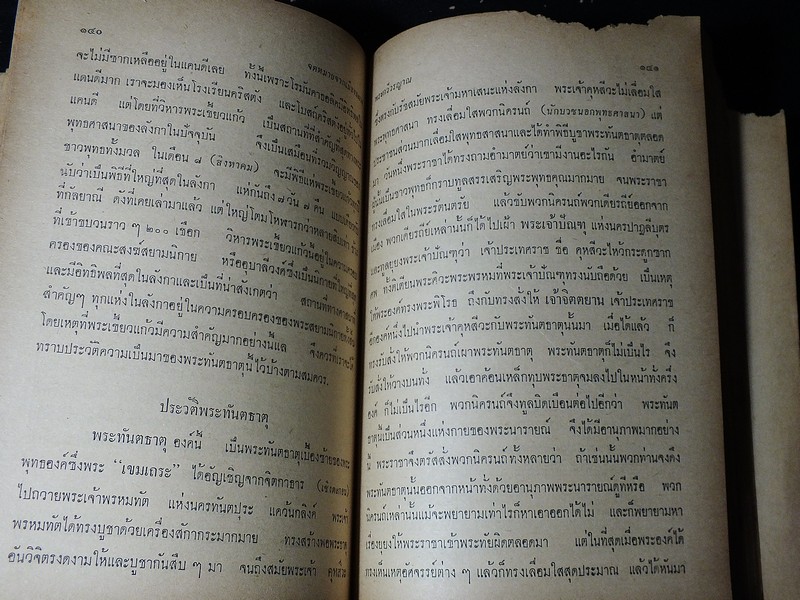 ๑๔๐
จะไม่มีซากเหลืออยู่ในแคนดีเลย ทั้งนี้เพราะโรมันคาธอลิค
แดนดีมาก เราจะมองเห็นโรงเรียนคริสตัง และโบสถ์คริสต์
แคนดี แต่โดยที่วิหารพระเขี้ยวแก้ว เป็นสถานที่ที่สำคัญที่สุด
พุทธศาสนาของลังกาในปัจจุบัน จึงเป็นเสมือนที่รวมวิญญาณ
ชาวพุทธทั้งมวล ในเดือน ๘ (สิงหาคม) จะมีพิธีแห่พระเขี้ยวแก้ว
นับว่าเป็นพิธีที่ใหญ่ที่สุดในลังกา แห่กันถึง ๗ วัน ๗ คืน
ที่กัลยาณี ดังที่เคยเล่ามาแล้ว แต่ใหญ่โตมโหฬารกว่าหลายสิบเท่า
ที่เข้าขบวนราว ๆ ๒๐๐ เชือก วิหารพระเขี้ยวแก้วนี้อยู่ในความ
ครองของคณะสงฆ์สยามนิกาย หรืออุบาลีวงศ์ซึ่งเป็นนิกายที่ใหญ่ที่สุด
และมีอิทธิพลที่สุดในลังกาและเป็นที่น่าสังเกตว่า สถานที่ทางศาสนา
สำคัญๆ ทุกแห่งในลังกาอยู่ในความครอบครองของพระสยามนิกายทั้งสิ้น
โดยเหตุที่พระเขี้ยวแก้วมีความสำคัญมากอย่างนี้แล จึงควรที่เราจะได้
ทราบประวัติความเป็นมาของพระทันตธาตุนี้ไว้บ้างตามสมควร.
ประวัติพระทันตธาตุ
พระทันตธาตุ องค์นี้ เป็นพระทันตธาตุเบื้องซ้ายของพระ
พุทธองค์ซึ่งพระ “เขมเถระ” ได้อัญเชิญจากจิตกาธาร (เชิงตะกอน)
ไปถวายพระเจ้าพรหมทัต แห่งนครทันตปุระ แคว้นกลิงค์ พระเจ้า
พรหมทัตได้ทรงบูชาด้วยเครื่องสักการะมากมาย ทรงสร้างพระราช
อันวิจิตรงดงามให้และบูชากันสืบ ๆ มา จนถึงสมัยพระเจ้า คุหสีวะ
๑๔๑
ซึ่งตรงกับรัชสมัยพระเจ้ามหาเสนะแห่งลังกา พระเจ้าคุหสีวะไม่เลื่อมใส
พระพุทธศาสนา ทรงเลื่อมใสพวกนิครนถ์ (นักบวชนอกพุทธศาสนา) แต่
ประชาชนส่วนมากเลื่อมใสพุทธสาสนาและได้ทำพิธีบูชาพระทันตธาตุตลอด
มา วันหนึ่งพระราชาได้ทรงถามอำมาตย์ว่าเขามีงานอะไรกัน อำมาตย์
ผู้นั้นเป็นชาวพุทธก็กราบทูลสรรเสริญพระพุทธคุณมากมาย จนพระราชา
ทรงเลื่อมใสในพระรัตนตรัย แล้วขับพวกนิครนถ์พวกเดียรถีย์ออกจาก
เมือง พวกเดียรถีย์เหล่านั้นก็ได้ไปเฝ้า พระเจ้าปัณฑุ แห่งนครปาฏลีบุตร
และทูลยุยงพระเจ้าปัณฑุว่า เจ้าประเทศราช ชื่อ คุหสีวะไหว้กระดูกซาก
ศพ ทั้งติเตียนพระศิวะพระพรหมที่พระเจ้าปัณฑุทรงนับถือด้วย เป็นเหตุ
ให้พระองค์ทรงพระพิโรธ ถึงกับทรงสั่งให้ เจ้าจิตตยาน เจ้าประเทศราช
อีกองค์หนึ่งไปนำพระเจ้าคุหสีวะกับพระทันตธาตุนั้นมา เมื่อได้แล้ว ก็
ทรงรับสั่งให้พวกนิครนถ์เผาพระทันตธาตุ พระทันตธาตุก็ไม่เป็นไร จึง
รับสั่งให้วางบนทั่ง แล้วเอาค้อนเหล็กทุบพระธาตุจมลงไปในหน้าทั่งครึ่ง
องค์ ก็ไม่เป็นไรอีก พวกนิครนถ์จึงทูลบิดเบือนต่อไปอีกว่า พระทันต
ธาตุนี้เป็นส่วนหนึ่งแห่งกายของพระนารายณ์ จึงได้มีอานุภาพมากอย่าง
นี้ พระราชาจึงตรัสสั่งพวกนิครนถ์ ทั้งหลายว่า ถ้าเช่นนั้นพวกท่านจงดึง
พระทันตธาตุนั้นออกจากหน้าทั่งด้วยอานุภาพพระนารายณ์ดูทีหรือ พวก
นิครนถ์เหล่านั้นแม้จะพยายามเท่าไรก็หาเอาออกได้ไม่ และก็พยายามหา
เรื่องยุงให้พระราชาเข้าพระทัยผิดตลอดมา แต่ในที่สุดเมื่อพระองค์ได้
ทรงเห็นเหตุอัศจรรย์ต่าง ๆ แล้วก็ทรงเลื่อมใสสุดประมาณ แล้วได้หันมา